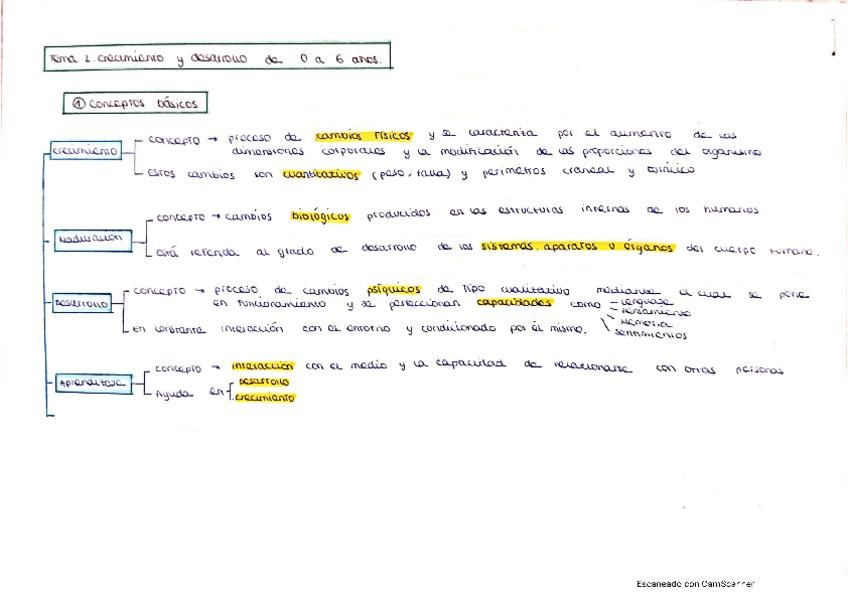 Tema 2. crecimiento y desarrollo de 0 a 6 años.
① Conceptos básicos
crecimiento
concepto → proceso de cambios físicos y se caracteriza por el aumento de las
dimensiones corporales y la modificación de las proporciones del organismo
Estos cambios son cuantitativos (peso, talla) y perímetros craneal y torácico
Maduración
concepto → cambios biológicos producidos en las estructuras internas de los humanos
está referida al grado de desarrollo de los sistemas, aparatos u órganos del cuerpo humano.
Desarrollo
concepto → proceso de cambios psíquicos de tipo cualitativo mediante el cual se pone
en funcionamiento y se perfeccionan capacidades como
- lenguaje
- pensamiento
memoria
sentimientos
En constante interacción con el entorno y condicionado por él mismo.
Aprendizaje
concepto → interacción con el medio y la capacidad de relacionarse con otras personas
Ayuda en
desarrollo
crecimiento
Escaneado con CamScanner